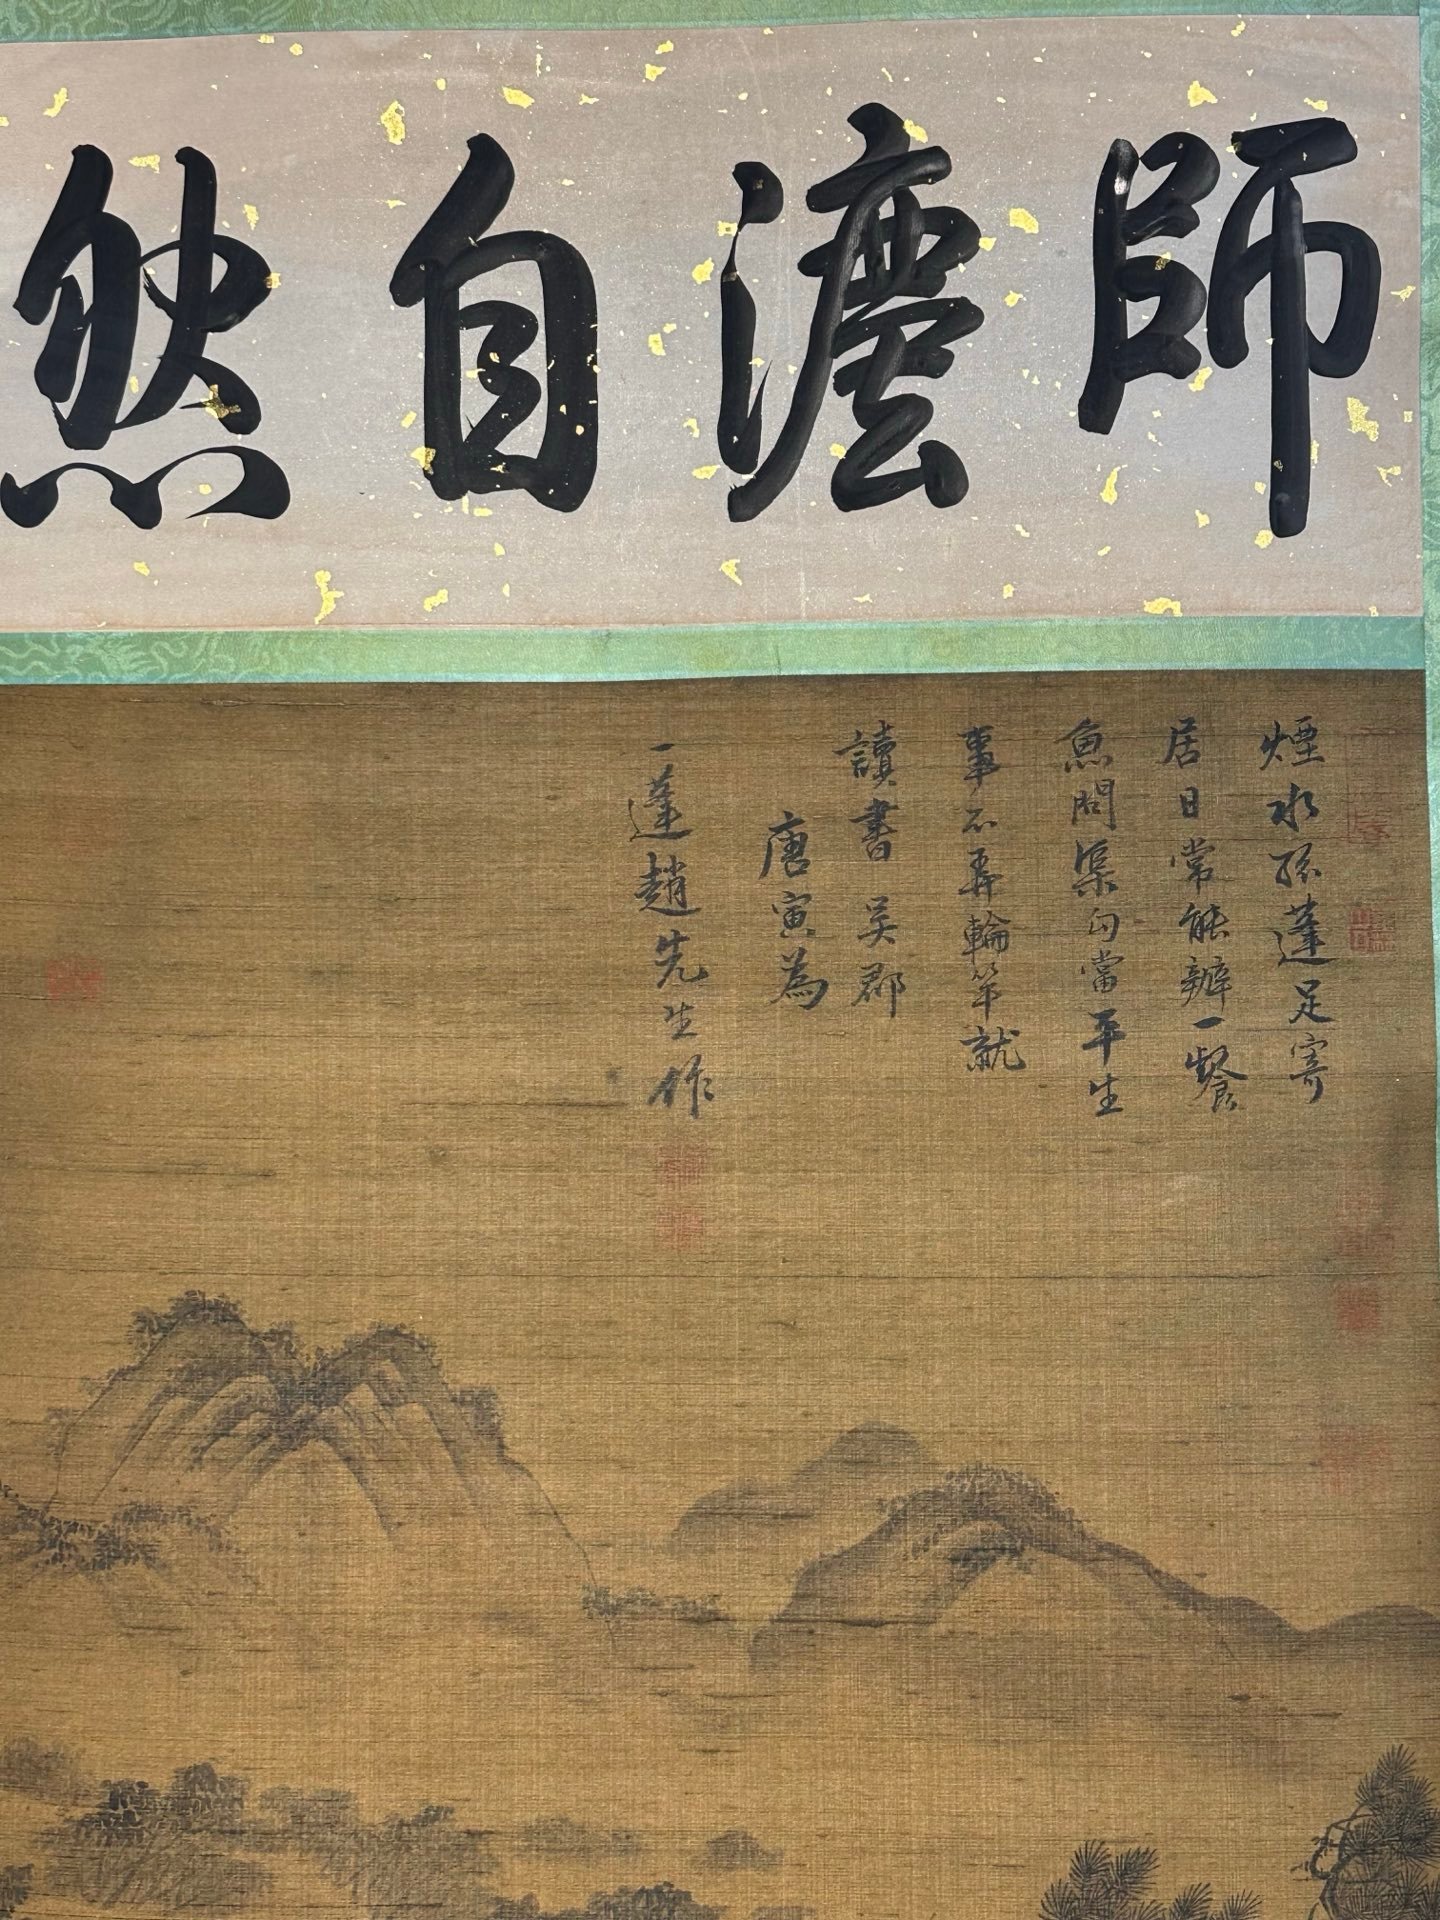 師灋自然
煙水孤蓬足寄
居日常能辦一餐
魚問渠勾當平生
事不弄輪竿就
讀書 吴郡
唐寅為
一蓬趙先生作